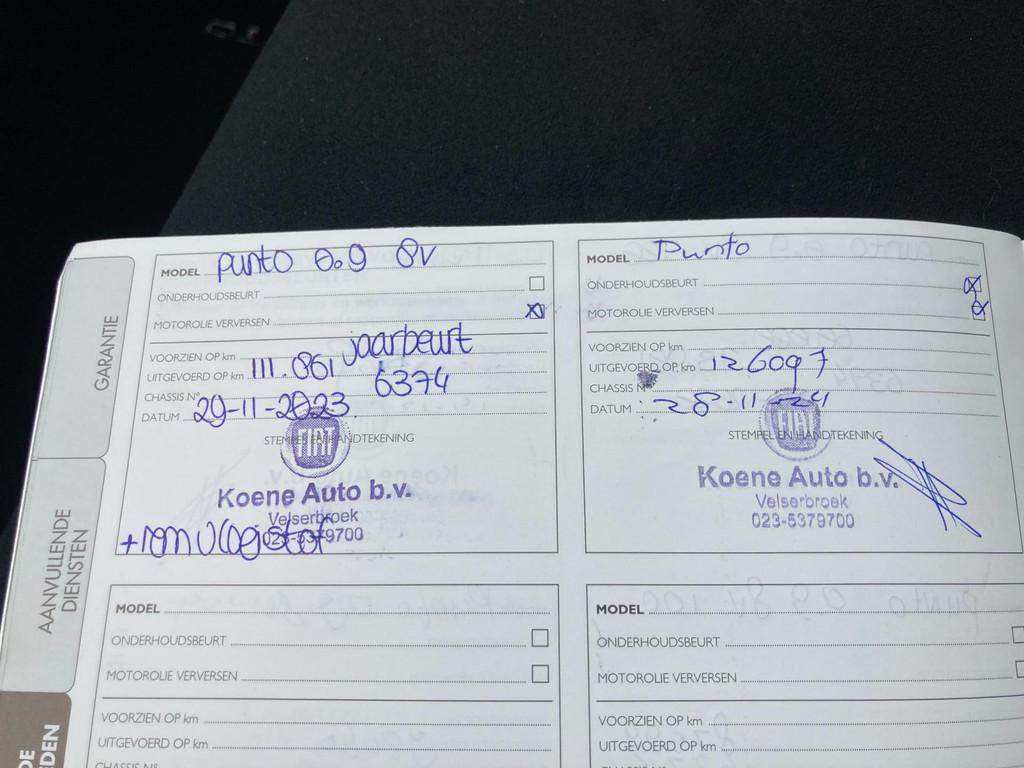 GARANTIE
AANVULLENDE
DIENSTEN
MODEL punto 0.9 8v
ONDERHOUDSBEURT
MOTOROLIE VERVERSEN
VOORZIEN OP km jaarbeurt
UITGEVOERD OP km 111.861
CHASSIS N° 6374
DATUM 29-11-2023
STEMPEL EN HANDTEKENING
FIAT
Koene Auto b.v.
Velserbroek
023-5379700
+remvloeistof
MODEL Punto
ONDERHOUDSBEURT
MOTOROLIE VERVERSEN
VOORZIEN OP km
UITGEVOERD OP km 126097
CHASSIS N°
DATUM 28-11-24
STEMPEL EN HANDTEKENING
FIAT
Koene Auto b.v.
Velserbroek
023-5379700
MODEL
ONDERHOUDSBEURT
MOTOROLIE VERVERSEN
VOORZIEN OP km
UITGEVOERD OP km
CHASSIS N°
MODEL
ONDERHOUDSBEURT
MOTOROLIE VERVERSEN
VOORZIEN OP km
UITGEVOERD OP km